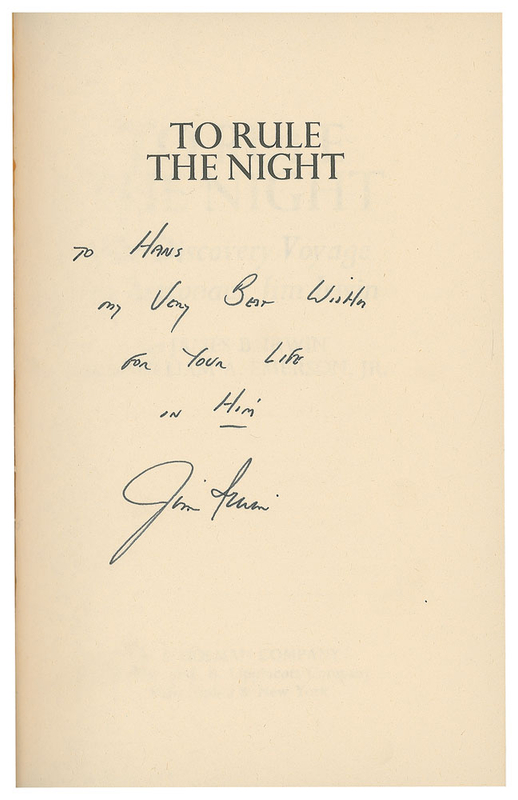 TO RULE
THE NIGHT
TO HANS
my Very Best Wishes
FOR YOUR LIFE
in Him
Jim Irwin